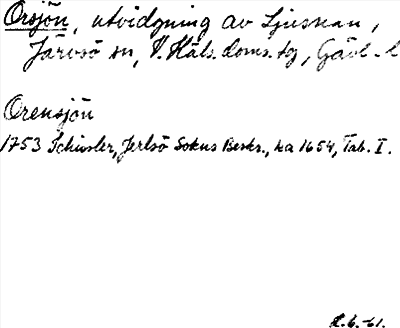 Orsjön, utvidgning av Ljusnan,
Järvsö sn, V. Häls. doms. tg, Gävl. l
Orensjön
1753 Schissler, Jerlsö Sokns Beskr., ka 1654, Tab. I.
L. b. -61.